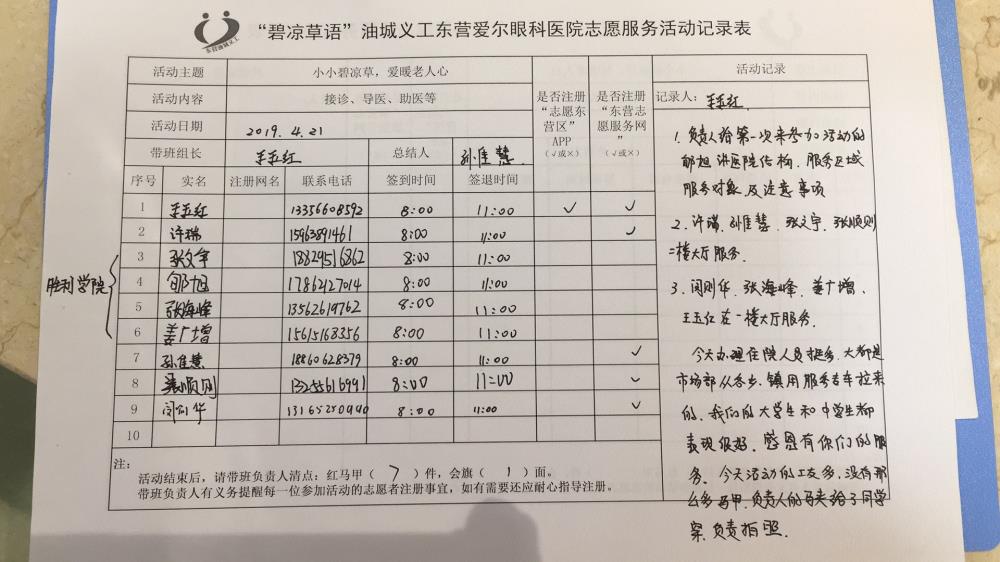 东营油城义工
“碧凉草语”油城义工东营爱尔眼科医院志愿服务活动记录表
活动主题 小小碧凉草，爱暖老人心
活动内容 接诊、导医、助医等
活动日期 2019.4.21
带班组长 王玉红 总结人 孙佳慧
是否注册“志愿东营区”APP（√或×）
是否注册“东营志愿服务网”（√或×）
序号 实名 注册网名 联系电话 签到时间 签退时间
1 王玉红 13356608592 8:00 11:00 √ √
2 许瑞 15963891461 8:00 11:00 √
3 张文宇 18829516862 8:00 11:00
4 郇旭 17862127014 8:00 11:00
5 张海峰 13562619762 8:00 11:00
6 姜广增 15615168356 8:00 11:00
7 孙佳慧 18860628379 8:00 11:00 √
8 张顺则 13255616991 8:00 11:00 √
9 闵刚华 13165250940 8:00 11:00 √
10
胜利学院
注：
活动结束后，请带班负责人清点：红马甲（7）件，会旗（1）面。
带班负责人有义务提醒每一位参加活动的志愿者注册事宜，如有需要还应耐心指导注册。
活动记录
记录人：王玉红
1. 负责人给第一次来参加活动的
郇旭讲医院结构、服务区域
服务对象及注意事项
2. 许瑞、孙佳慧、张文宇、张顺则
二楼大厅服务。
3. 闵刚华、张海峰、姜广增、
王玉红在一楼大厅服务。
今天办理住院人员挺多，大都是
市场部从各乡、镇用服务专车拉来
的，我们的大学生和中学生都
表现很好，感恩有你们的服
务。今天活动的工友多，没有那
么多马甲，负责人的马夹给了同学
穿，负责拍照.